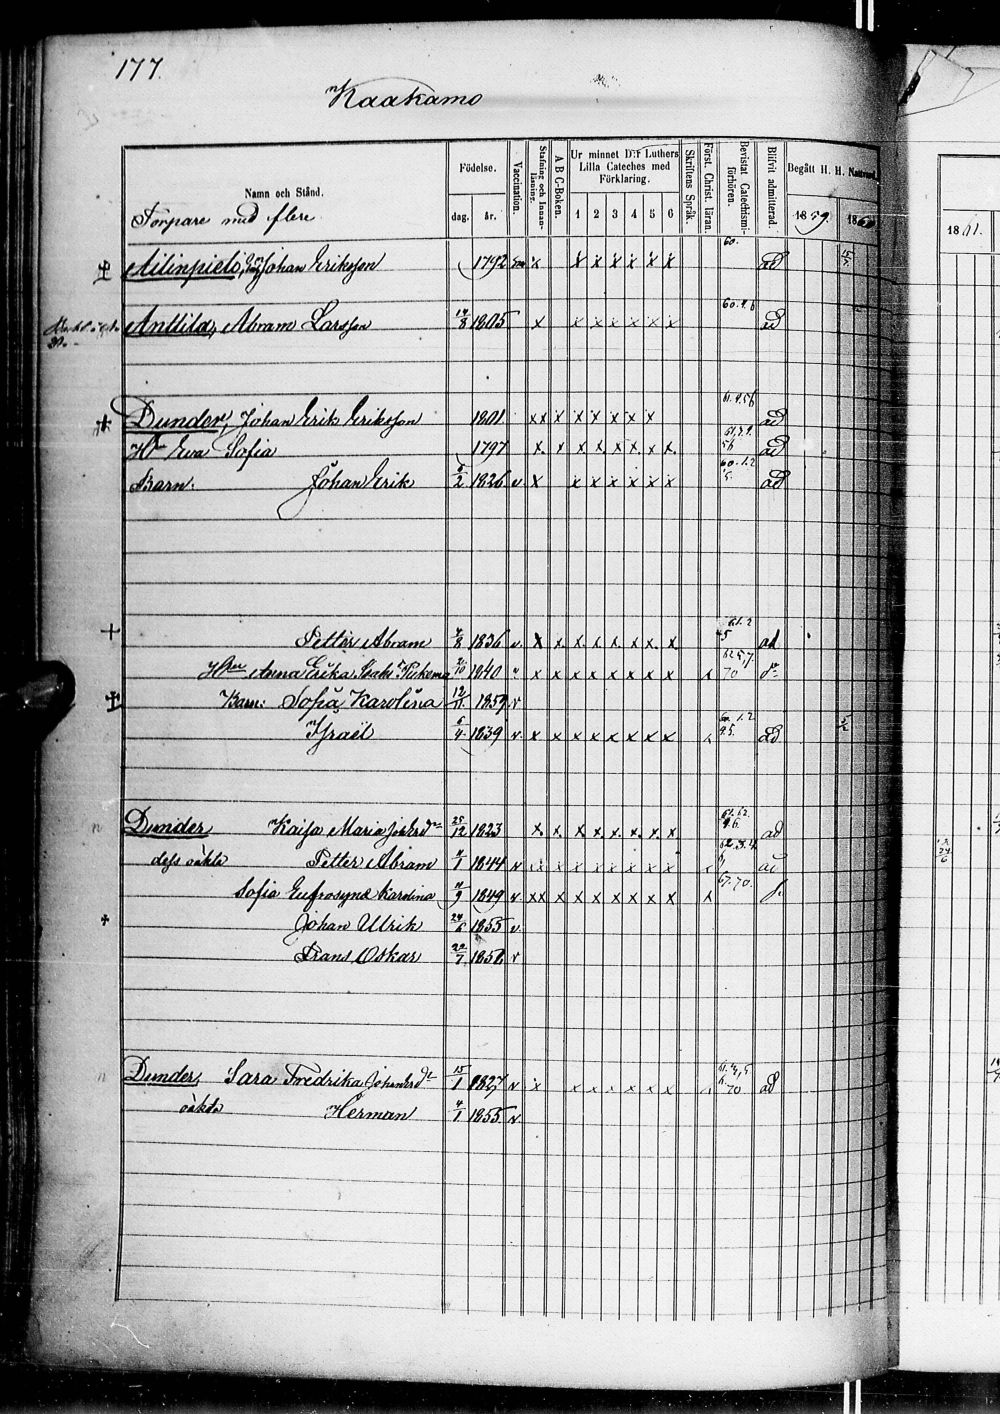 177.
Kaakamo
Namn och Stånd.
Torpare med flere
Födelse.
dag. år.
Vaccination.
Stafning och Innanläsning.
A B C-Boken.
Ur minnet D:r Luthers Lilla Cateches med Förklaring.
1 2 3 4 5 6
Skriftens Språk.
Först. Christ. läran.
Bevistat Catechismiförhören.
Blifvit admitterad.
Begått H. H. Nattvard.
1859. 1860
1861.
Ailinpieto, Johan Eriksson 1792 x x x x x x x 60. ad
Anttila, Abram Larsson 14/8 1805 x x x x x x x 60. 4. 6 ad
Dunder, Johan Erik Eriksson 1801 x x x x x x x x 61. 4. 56 ad
Hu Eva Sofia 1797 x x x x x x x x 56 ad
Barn: Johan Erik 5/2 1826 v x x x x x x x 60. 1. 2 5. ad
Petter Abram 4/8 1836 v. x x x x x x x x 45 ad
Hru Anna Erika Isaks 1840 " x x x x x x x x x 70 do
Barn: Sofia Karolina 12/11 1859 v
Israël 5/4 1839 v. x x x x x x x x x 60. 1. 2 4. 5. ad
Dunder Kaisa Maria Johsdr 25/12 1823 x x x x x x x x 61. 62. 46. ad
dess oäkta Petter Abram 4/1 1844 v x x x x x x x x x 62. 3. 4 ad
Sofia Eufrosyna Karolina 4/9 1849 v. x x x x x x x x x 67. 70.
Johan Ulrik 24/6 1855 v.
Frans Oskar 22/7 1858 v
Dunder, Sara Fredrika Johansdr 15/1 1827 v x x x x x x x x 70 ad
oäkta Herman 4/1 1855 v.